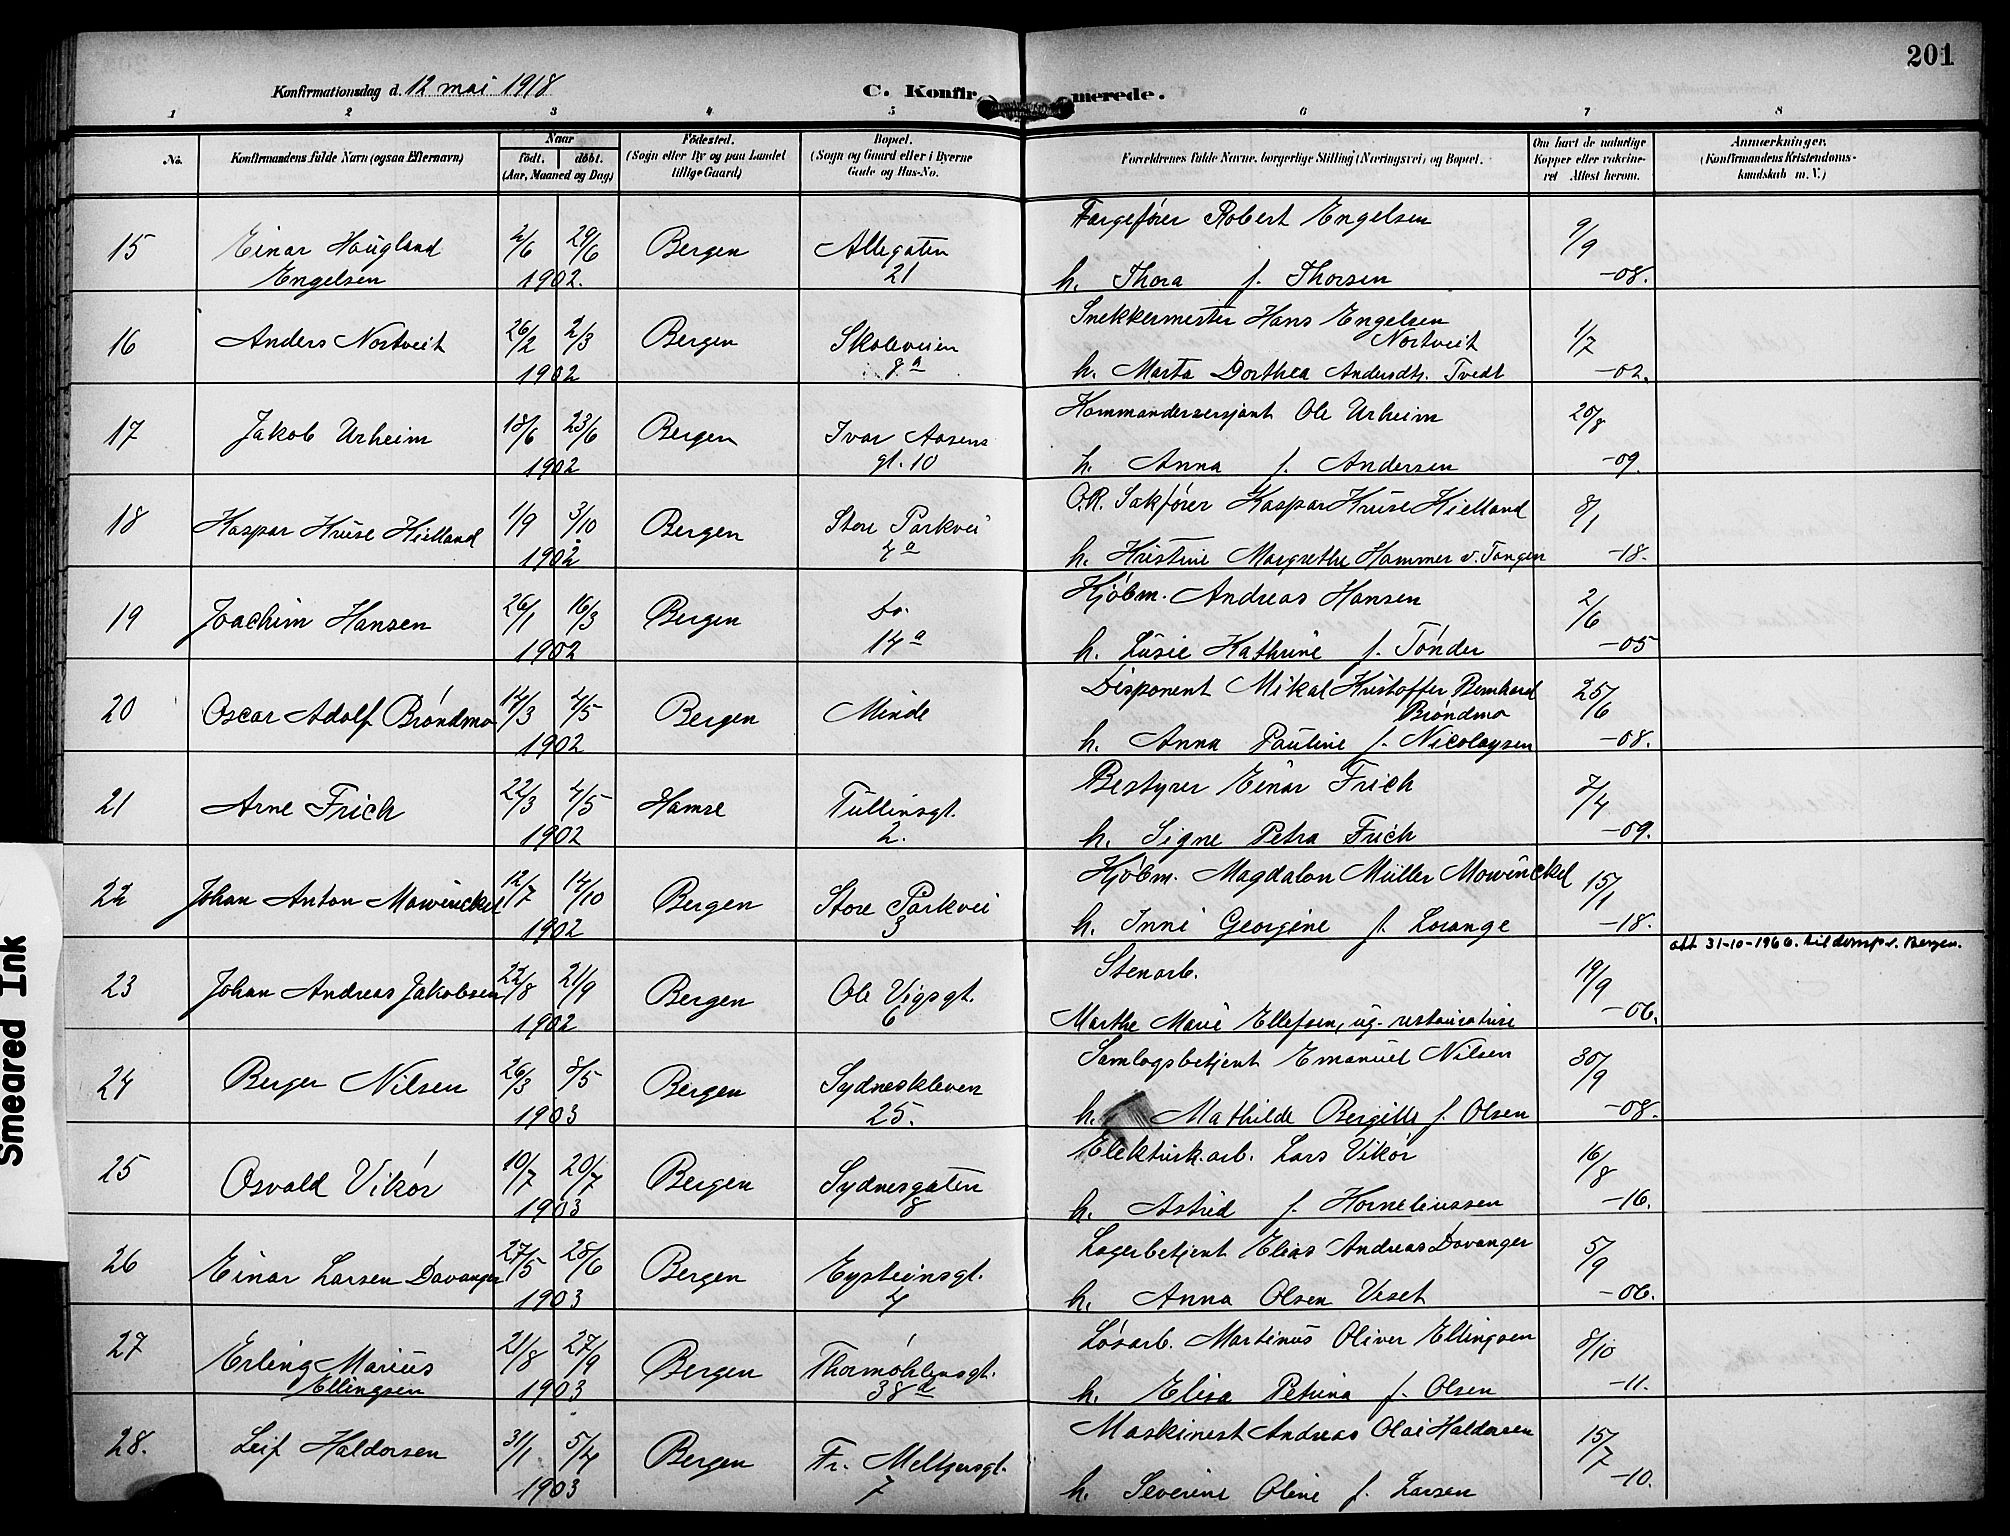 201
Konfirmationsdag d. 12 mai 1918
C. Konfirmerede.
1 2 3 4 5 6 7 8
No. Konfirmandens fulde Navn (ogsaa Efternavn) Naar født. døbt. (Aar, Maaned og Dag) Fødested. (Sogn eller By og paa Landet tillige Gaard) Bopæl. (Sogn og Gaard eller i Byerne Gade og Hus-No. Forældrenes fulde Navne, borgerlige Stilling (Næringsvei) og Bopæl. Om havt de naturlige Kopper eller vakcineret Attest herom. Anmærkninger. (Konfirmandens Kristendomskundskab m. V.)
15 Einar Haugland 2/6 29/6 Bergen Allegaten Fargefører Robert Engelsen 9/9
Engelsen 1902. 21 h. Thora f. Thorsen -08.
16 Anders Nortveit 26/2 2/3 Bergen Skoleveien Snekkermester Hans Engelsen Nortveit 1/7
1902 8 a h. Marta Dorthea Andersdtr. Tvedt -02.
17 Jakob Urheim 18/6 23/6 Bergen Ivar Aasens Kommandersersjant Ole Urheim 20/8
1902 gt. 10 h. Anna f. Andersen -09.
18 Kaspar Kruse Kielland 1/9 3/10 Bergen Store Parkvei O.R. Sakfører Kaspar Kruse Kielland 8/1
1902 4 a h. Kristine Margrethe Hammer v. Tangen -18.
19 Joachim Hansen 26/1 16/3 Bergen do. Kjøbm. Andreas Hansen 2/6
1902 14 a h. Lusie Kathrine f. Tønder -05
20 Oscar Adolf Brøndmo 14/3 4/5 Bergen Minde Disponent Mikal Kristoffer Bernhard Brøndmo 25/6
1902 h. Anna Pauline f. Nicolaysen -08.
21 Arne Frich 22/3 4/5 Hamre Tullinsgt. Bestyrer Einar Frich 7/4
1902 2. h. Signe Petra Frich -09.
22 Johan Anton Mowinckel 12/7 14/10 Bergen Store Parkvei Kjøbm. Magdalon Müller Mowinckel 15/1
1902 3 h. Inni Georgine f. Lorange -18.
att 31-10-1966. til domsp.v. Bergen.
23 Johan Andreas Jakobsen 22/8 21/9 Bergen Ole Vigsgt. Stenarb. 19/9
1902 6 Marthe Marie Ellefsen, ug. restauratrise -06.
24 Berger Nilsen 26/3 8/5 Bergen Sydneskleven Samlagsbetjent Emanuel Nilsen 30/9
1903 25. h. Mathilde Bergitte f. Olsen -08.
25 Osvald Vikør 10/7 20/7 Bergen Sydnesgaten Elektrisk.arb. Lars Vikør 16/8
1903 8 h. Astrid f. Kornelinssen -16.
26 Einar Larsen Davanger 27/5 28/6 Bergen Eysteinsgt. Lagerbetjent Elias Andreas Davanger 5/9
1903 4 h. Anna Olsen Veset -06.
27 Erling Marius 21/8 27/9 Bergen Thormøhlensgt. Løsarb. Martinus Oliver Ellingsen 8/10
Ellingsen 1903 38 d h. Elisa Petrina f. Olsen -11.
28. Leif Haldorsen 31/1 5/4 Bergen Fr. Meltzersgt. Maskinest Andreas Olai Haldorsen 15/7
1903 7 h. Severine Oline f. Larsen -10.
Smeared Ink